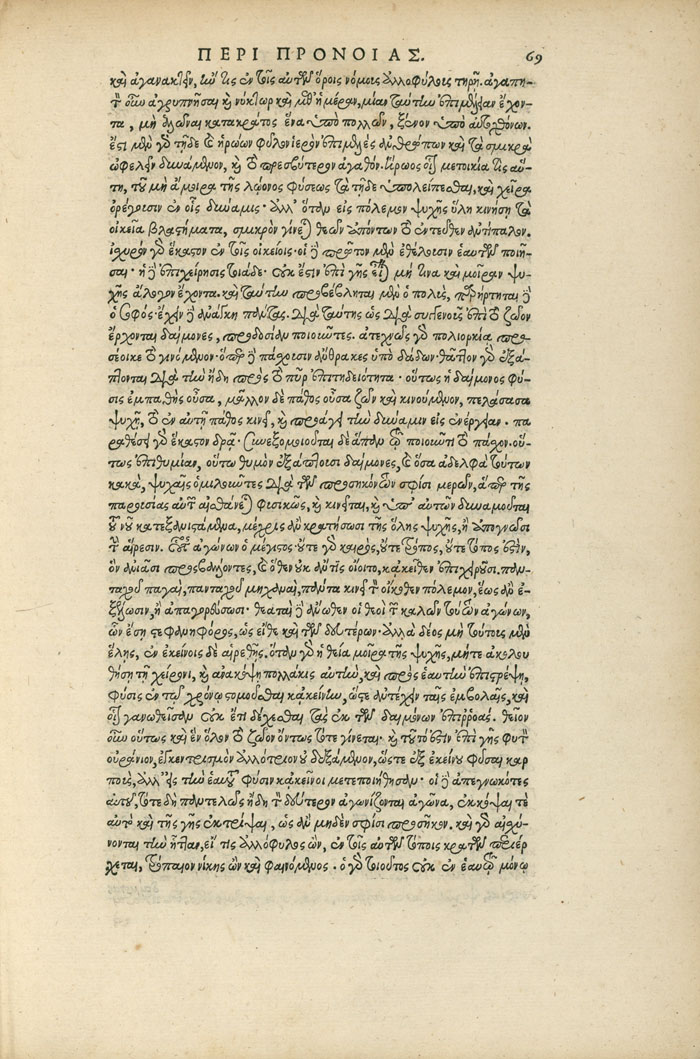 ΠΕΡΙ ΠΡΟΝΟΙΑΣ. 69
καὶ ἀγανακτεῖν, ἢν τις ἐν τοῖς αὐτῶν ὅροις νόμοις ἀλλοφύλοις τηρῇ. ἀγαπη-
τὸν οὖν ἀγρυπνῆσαι καὶ νύκτωρ καὶ μεθ' ἡμέραν, μίαν ταύτην ἐπιμέλειαν ἔχον-
τα, μὴ ἁλῶναι κατακράτος ἕνα ὑπὸ πολλῶν, ξένον ὑπὸ αὐτοχθόνων.
ἔστι μὲν γὰρ τῇδε καὶ ἡρώων φῦλον ἱερὸν ἐπιμελὲς ἀνθρώπων καὶ τὰ σμικρὰ
ὠφελεῖν δυνάμενον, καὶ τὸ πρεσβύτερον ἀγαθόν. ἥρωος οἷον μετοικία τις αὕ-
τη, τοῦ μὴ ἄμοιρα τῆς λῴονος φύσεως τὰ τῇδε ὑπολείπεσθαι, καὶ χεῖρα
ὀρέγουσιν ἐν οἷς δύναμις. ἀλλ' ὅταν εἰς πόλεμον ψυχῆς ὕλη κινήσῃ τὰ
οἰκεῖα βλαστήματα, σμικρὸν γίνεται θεῶν ἀπόντων τὸ ἐντεῦθεν ἀντίπαλον.
ἰσχυρὸν γὰρ ἕκαστον ἐν τοῖς οἰκείοις. οἱ δὲ πρῶτον μὲν ἐθέλουσιν ἑαυτῶν ποιῆ-
σαι. ἡ δὲ ἐπιχείρησις τοιάδε. οὐκ ἔστιν ἐπὶ γῆς εἶναι μή τινα καὶ μοῖραν ψυ-
χῆς ἄλογον ἔχοντα. καὶ ταύτην προβέβληται μὲν ὁ πολὺς, παρήρτηται δὲ
ὁ σοφός. ἔχειν δὲ ἀνάγκη πάντας. διὰ ταύτης ὡς διὰ συγγενοῦς ἐπὶ τὸ ζῶον
ἔρχονται δαίμονες, προδοσίαν ποιοῦντες. ἀτεχνῶς γὰρ πολιορκίᾳ προσ-
έοικε τὸ γινόμενον. ὅπερ δὲ πάσχουσιν ἄνθρακες ὑπὸ δᾴδων. θᾶττον γὰρ ἐξά-
πτονται διὰ τὴν ἤδη πρὸς τὸ πῦρ ἐπιτηδειότητα. οὕτως ἡ δαίμονος φύ-
σις ἐμπαθὴς οὖσα, μᾶλλον δὲ πάθος οὖσα ζῶν καὶ κινούμενον, πελάσασα
ψυχῇ, τὸ ἐν αὐτῇ πάθος κινεῖ, καὶ προάγει τὴν δύναμιν εἰς ἐνέργειαν. πα
ραθέσει γὰρ ἕκαστον δρᾷ. συνεξομοιοῦται δὲ ἅπαν τῷ ποιοῦντι τὸ πάσχον. οὕ-
τως ἐπιθυμίαν, οὕτω θυμὸν ἐξάπτουσι δαίμονες, καὶ ὅσα ἀδελφὰ τούτων
κακὰ, ψυχαῖς ὁμιλοῦντες διὰ τῶν προσηκόντων σφίσι μερῶν, ἅπερ τῆς
παρουσίας αὐτῶν αἰσθάνεται φυσικῶς, καὶ κινεῖται, καὶ ὑπ' αὐτῶν δυναμοῦται
τοῦ νοῦ κατεξανιστάμενα, μέχρις ἂν κρατήσωσι τῆς ὅλης ψυχῆς, ἢ ἀπογνῶσι
τὴν αἵρεσιν. οὗτος ἀγώνων ὁ μέγιστος. οὔτε γὰρ καιρὸς, οὔτε τρόπος, οὔτε τόπος ἐστὶν,
ὃν ἀνιᾶσι προσβαλόντες, καὶ ὅθεν οὐκ ἄν τις οἴοιτο, κἀκεῖθεν ἐπιχειροῦσι. παν-
ταχοῦ παγαὶ, πανταχοῦ μηχαναὶ, πάντα κινεῖ τὸν οἴκοθεν πόλεμον, ἕως ἂν ἐ-
ξέλωσιν, ἢ ἀπαγορεύσωσι. θεαταὶ δὲ ἄνωθεν οἱ θεοὶ τῶν καλῶν τούτων ἀγώνων,
ὧν ἔσῃ στεφανηφόρος, ὡς εἴθε καὶ τῶν δευτέρων. ἀλλὰ δέος μὴ τούτους μὲν
ἕλῃς, ἐν ἐκείνοις δὲ αἱρεθῇς. ὅταν γὰρ ἡ θεία μοῖρα τῆς ψυχῆς, μήτε ἀκολου
θήσῃ τῇ χείρονι, καὶ ἀνακόψῃ πολλάκις αὐτὴν, καὶ πρὸς ἑαυτὴν ἐπιστρέψῃ,
φύσις ἐν τῷ χρόνῳ στομοῦσθαι κἀκείνην, ὥστε ἀντέχειν ταῖς ἐμβολαῖς, καὶ
οἷον γανωθεῖσαν οὐκ ἔτι δέχεσθαι τὰς ἐκ τῶν δαιμόνων ἐπιρροάς. θεῖον
οὖν οὕτως καὶ ἓν ὅλον τὸ ζῶον ὄντως τότε γίνεται. καὶ τοῦτό ἐστιν ἐπὶ γῆς φυτὸν
οὐράνιον, ἐγκεντρισμὸν ἀλλότριον οὐ δεξάμενον, ὥστε ἐξ ἐκείνου φῦσαι καρ
ποὺς, ἀλλ' εἰς τὴν ἑαυτοῦ φύσιν κἀκεῖνοι μετεποιήθησαν. οἱ δὲ ἀπεγνωκότες
αὐτοῦ, τότε δὴ παντελῶς ἤδη τὸν δεύτερον ἀγωνίζονται ἀγῶνα, ἐκκόψαι τε
αὐτὸ καὶ τῆς γῆς ἐκτρῖψαι, ὡς ἂν μηδὲν σφίσι προσῆκον. καὶ γὰρ αἰσχύ-
νονται τὴν ἧτταν, εἴ τις ἀλλόφυλος ὢν, ἐν τοῖς αὐτῶν τόποις κρατῶν περιέρ
χεται, τρόπαιον νίκης ὢν καὶ φαινόμενος. ὁ γὰρ τοιοῦτος οὐκ ἐν ἑαυτῷ μόνῳ